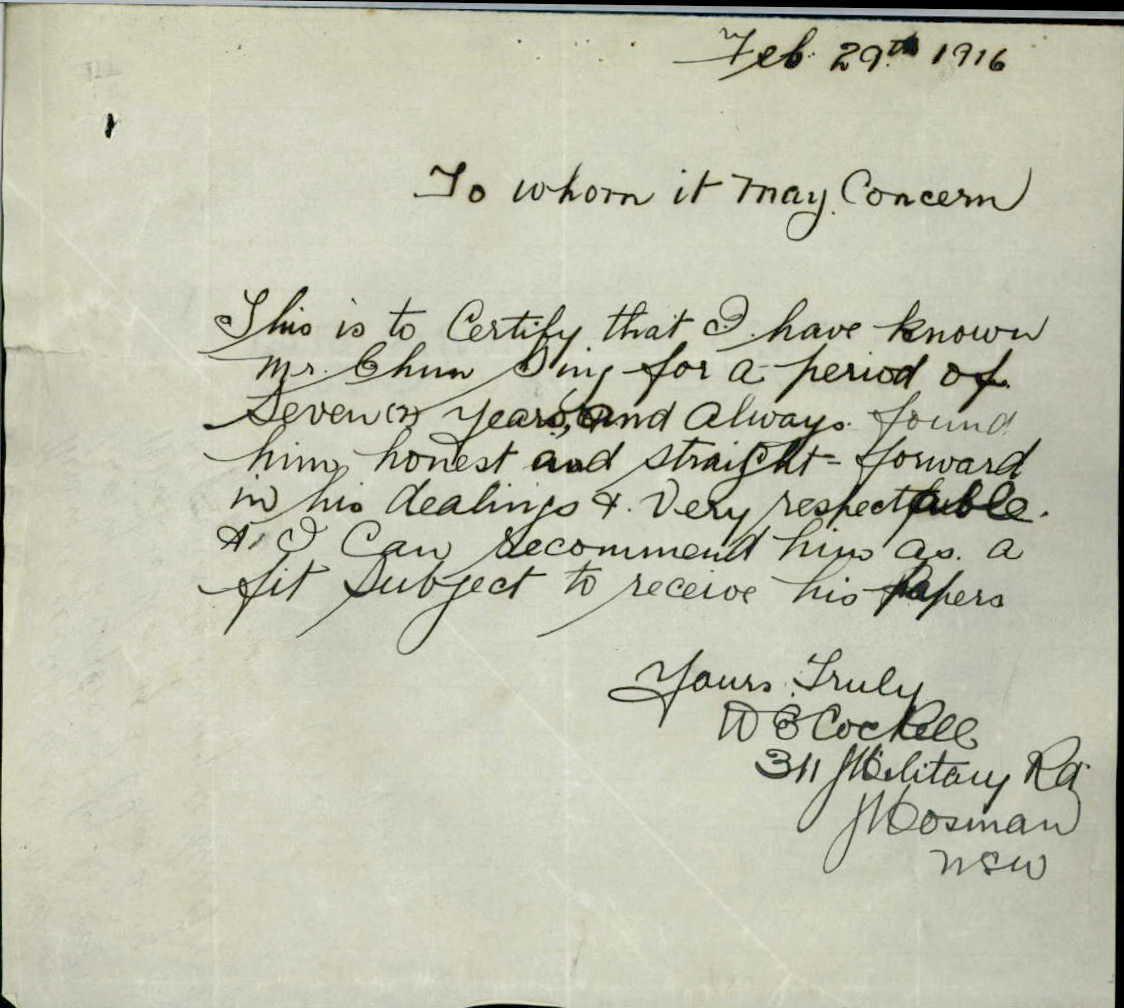 Feb. 29th 1916
To whom it may Concern
This is to Certify that I have known
Mr. Chun Sing for a period of
Seven (7) years, and always found
him honest and straight-forward
in his dealings & very respectable.
& I Can recommend him as a
fit subject to receive his papers
Yours Truly
W E Cockell
311 Military Rd
Mosman
NSW